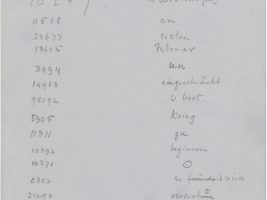 11518 am
23677 ersten
13605 Februar
3494 un-
14963 eingeschränkt
98092 U boot
5905 Krieg
11311 zu
10392 beginnen
10371 O
0302
21290 versuchen